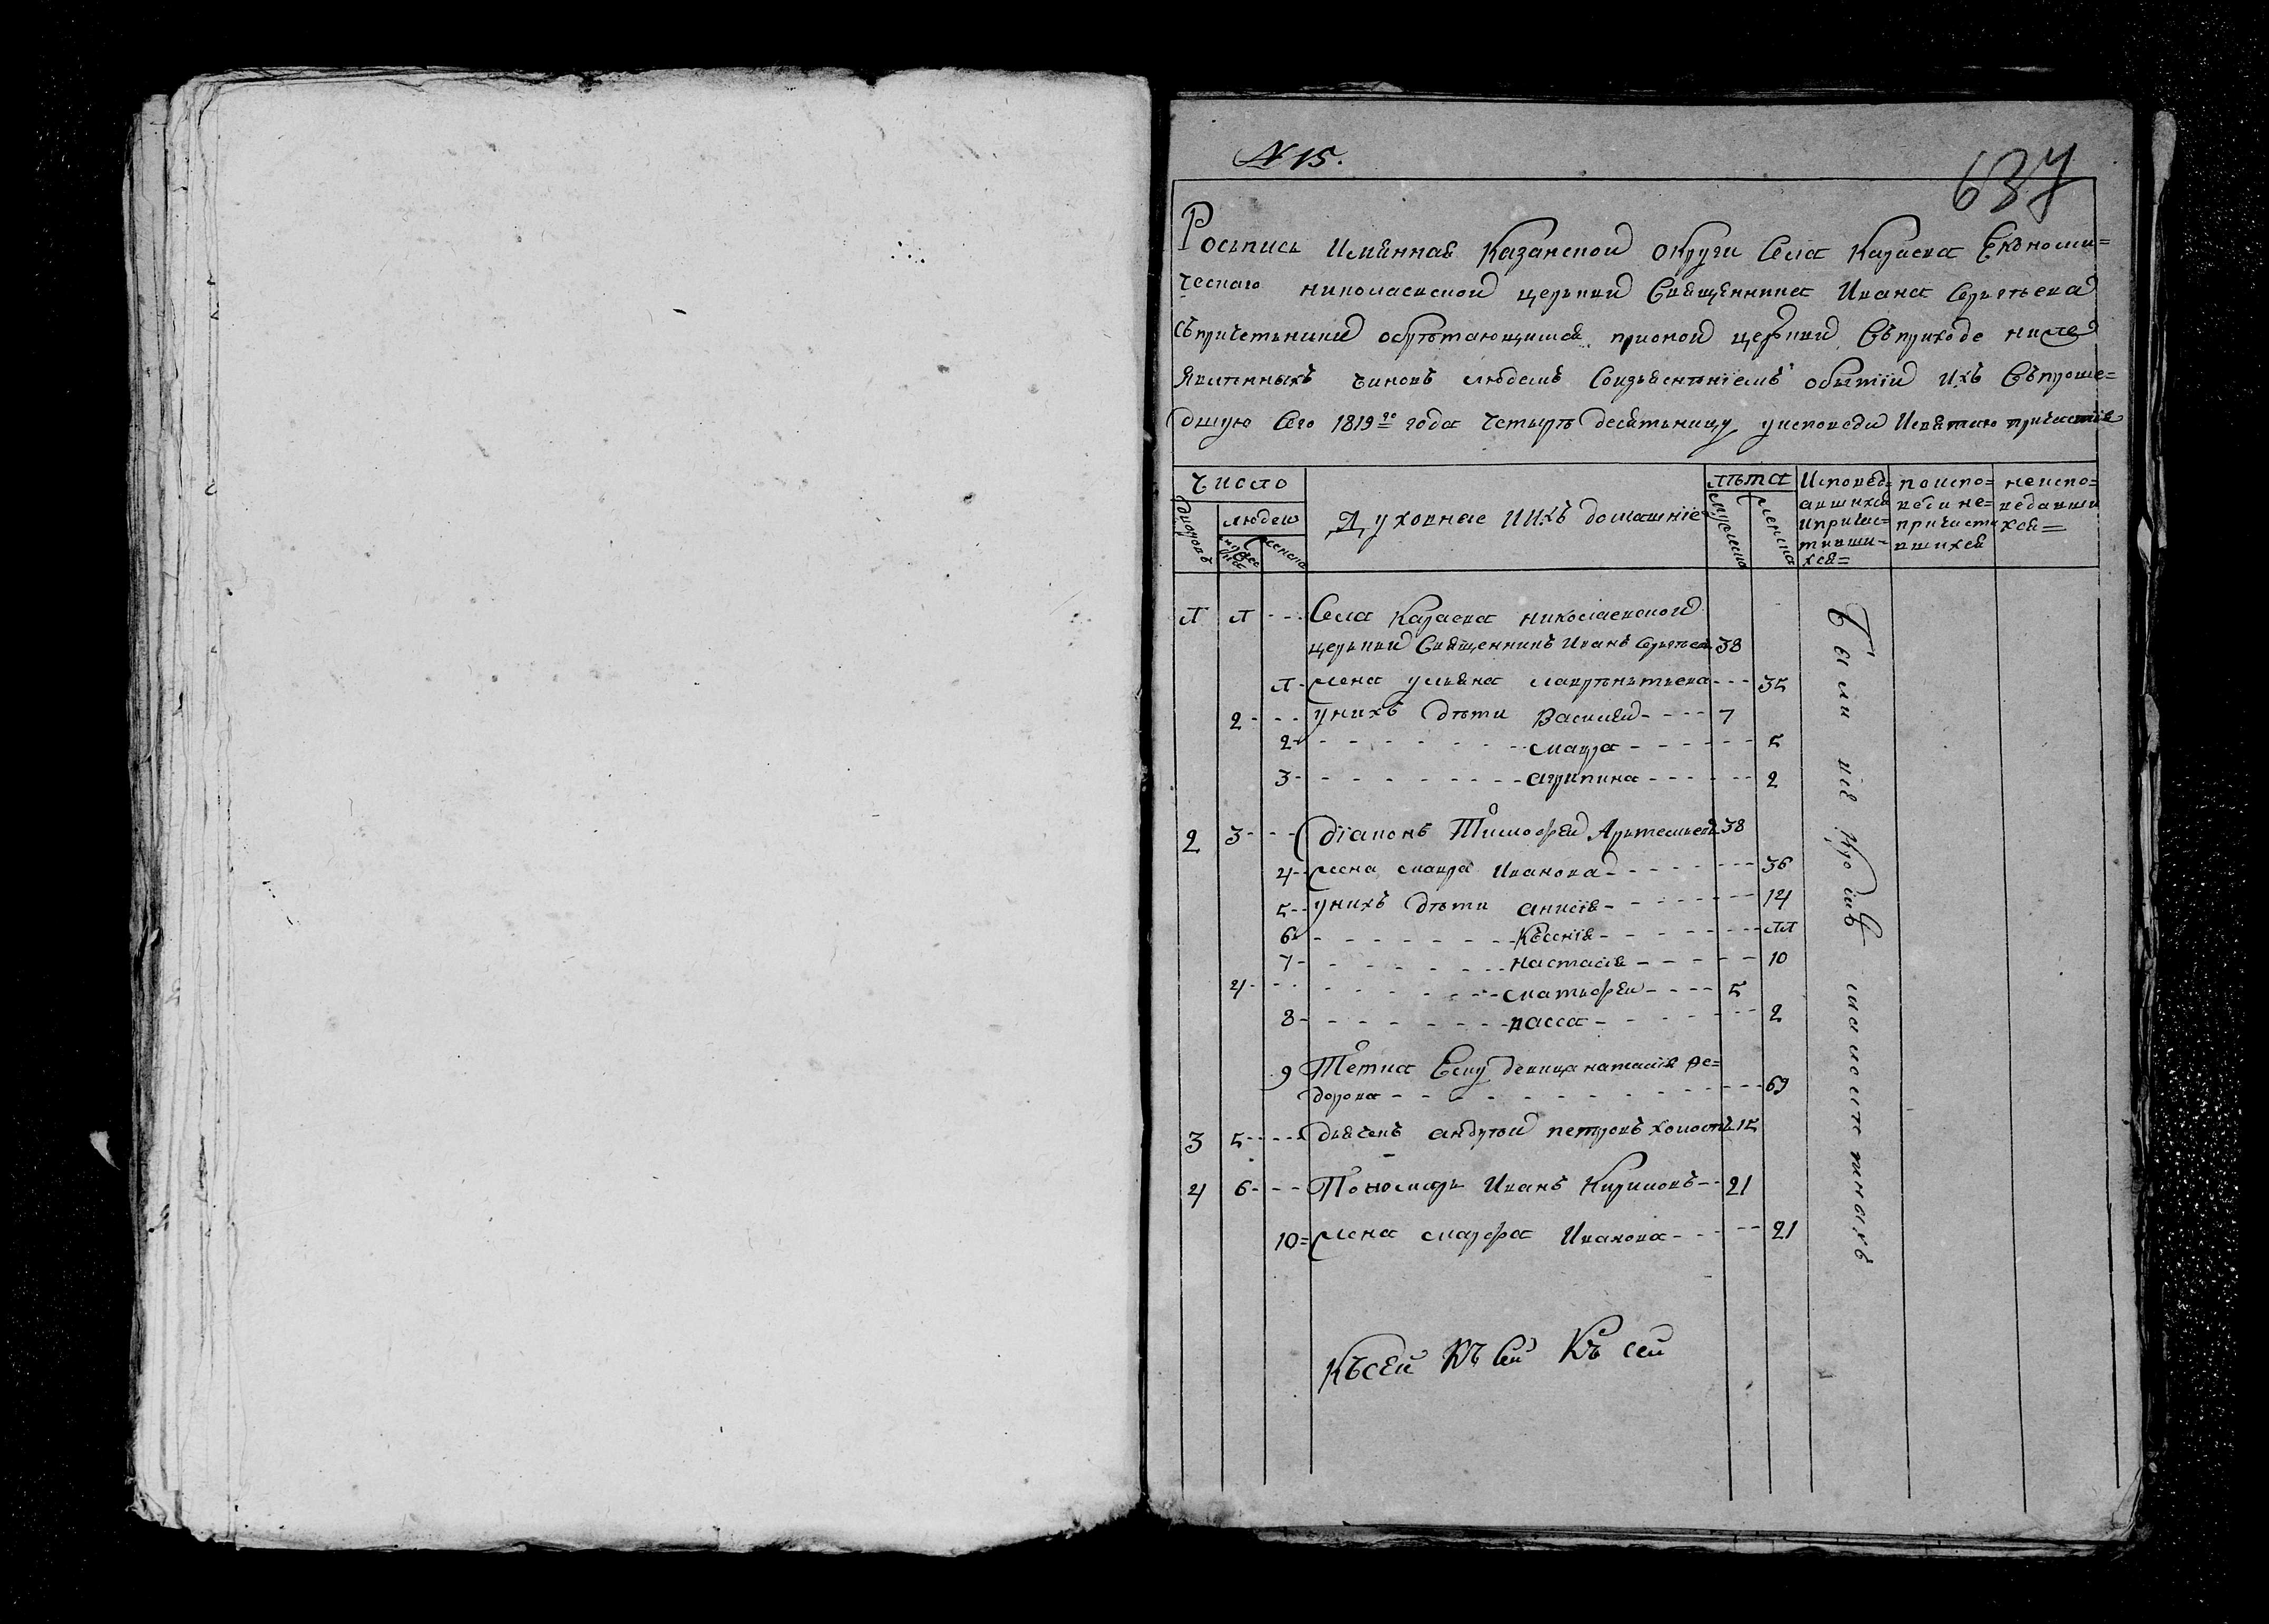 № 15.
637
Росьпись Имянная Казанской округи Села Караева Економи=
ческаго николаевской церькви Священника Ивана Сергеева
съпричетники обрѣтающимся прионой церькви Въприходе ниже
Явленныхъ чиновъ людемъ Соизъявленїемъ обытїи ихъ Въпроше=
дшую Сего 1819го года Четыредесятьницу уисповеди Исвятаго причастїя
Число
лѣта
Исповед=авшихся ипричас=тивши=хся=
поиспо=веди не=причасти вшихся
неиспо=ведавши хся=
дворовъ
людей
мужеска
женска
Духовные ИИхъ домашнїе
мужеска
женска
1 1 --- Села Караева николаевской
церькви Священникъ Иванъ 38
1- жена ульяна лаврентьева --- 35
2 --- унихъ дѣти Василей ---- 7
2 - - - - мавра - - - - 5
3 - - - - агрипина - - - - 2
2 3 --- дїаконъ Тимофей Артемьевъ 38
4-- жена мавра Иванова - - - - 36
5-- унихъ дѣти анисїя - - - - 14
6 - - - - Ксенїя - - - - 11
7 - - - - настасїя - - - - 10
4 - - - - матьфей - - - - 5
8 - - - - васса - - - - 2
9 Тетка Ему девица настасїя фе=
дорова - - - - 69
3 5 ---- дьячекъ андрей петровъ холостъ 15
4 6 --- Пономарь Иванъ Кириловъ -- 21
10= жена марфа Иванова - - - - 21
Были все кроме малолетныхъ
Къ сей Къ сей Къ сей